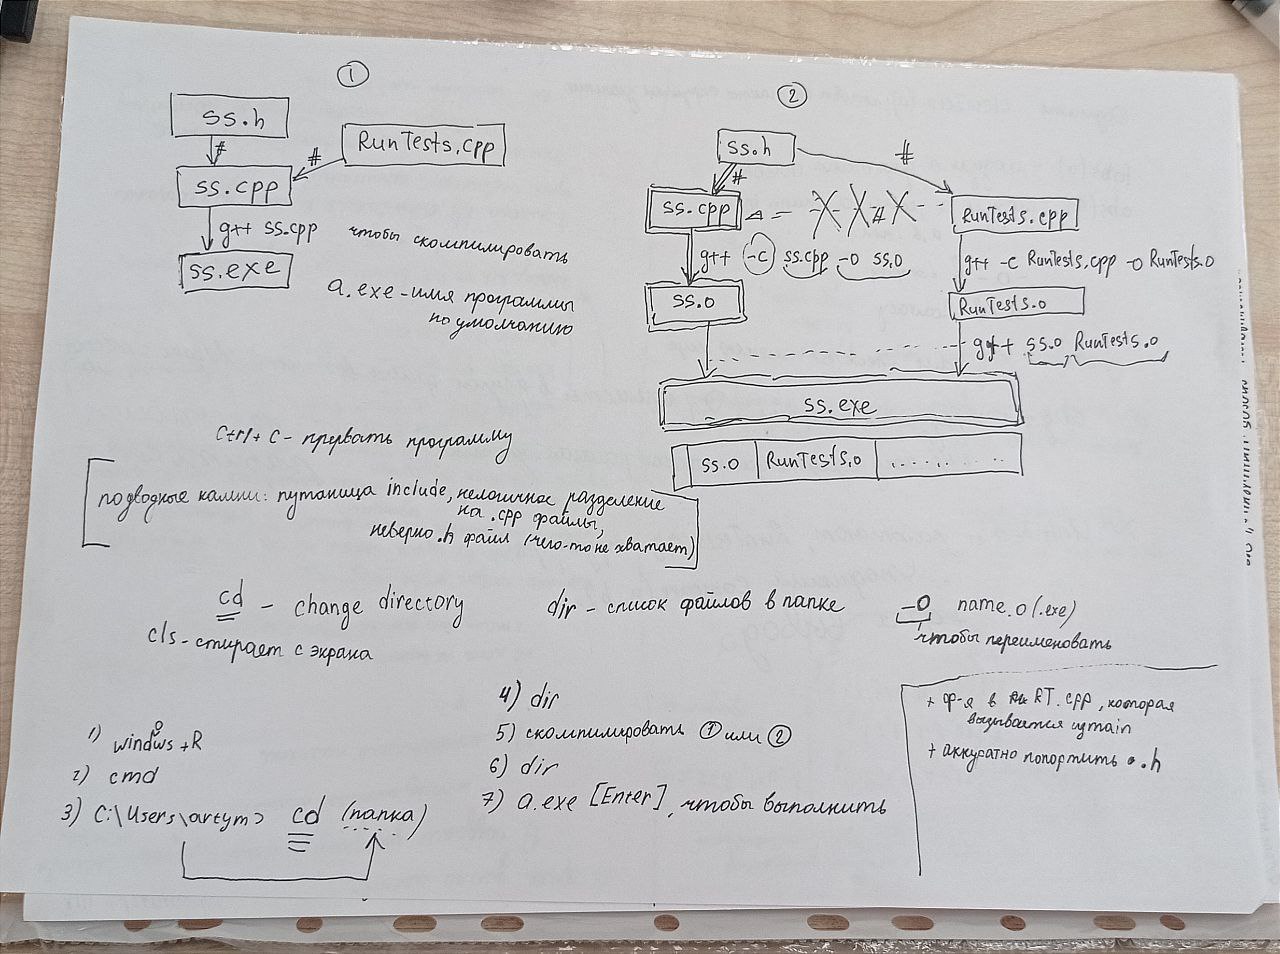 ①
ss.h
#
RunTests.cpp
#
ss.cpp
g++ ss.cpp
чтобы скомпилировать
ss.exe
a.exe - имя программы
по умолчанию
②
ss.h
#
#
ss.cpp
#
RunTests.cpp
g++ -c ss.cpp -o ss.o
g++ -c RunTests.cpp -o RunTests.o
ss.o
RunTests.o
g++ ss.o RunTests.o
ss.exe
ss.o RunTests.o ..........
Ctrl + C - прервать программу
подводные камни: путаница include, нелогичное разделение
на .cpp файлы,
неверно .h файл (чего-то не хватает)
cd - change directory
dir - список файлов в папке
-o name.o (.exe)
чтобы переименовать
cls - стирает с экрана
1) windows + R
2) cmd
3) C:\Users\artym> cd (папка)
4) dir
5) скомпилировать ① или ②
6) dir
7) a.exe [Enter], чтобы выполнить
+ ф-я в RT.cpp, которая
вызывается из main
+ аккуратно попортить .h